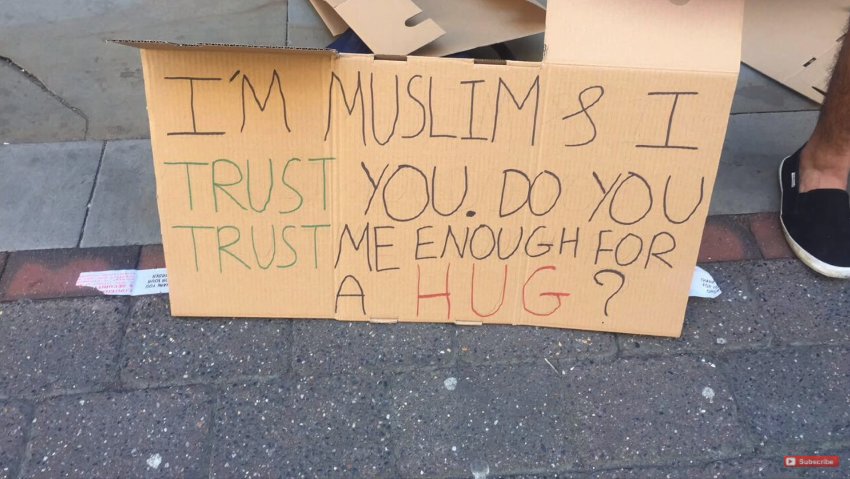 I'M MUSLIM & I
TRUST YOU. DO YOU
TRUST ME ENOUGH FOR
A HUG?
Subscribe